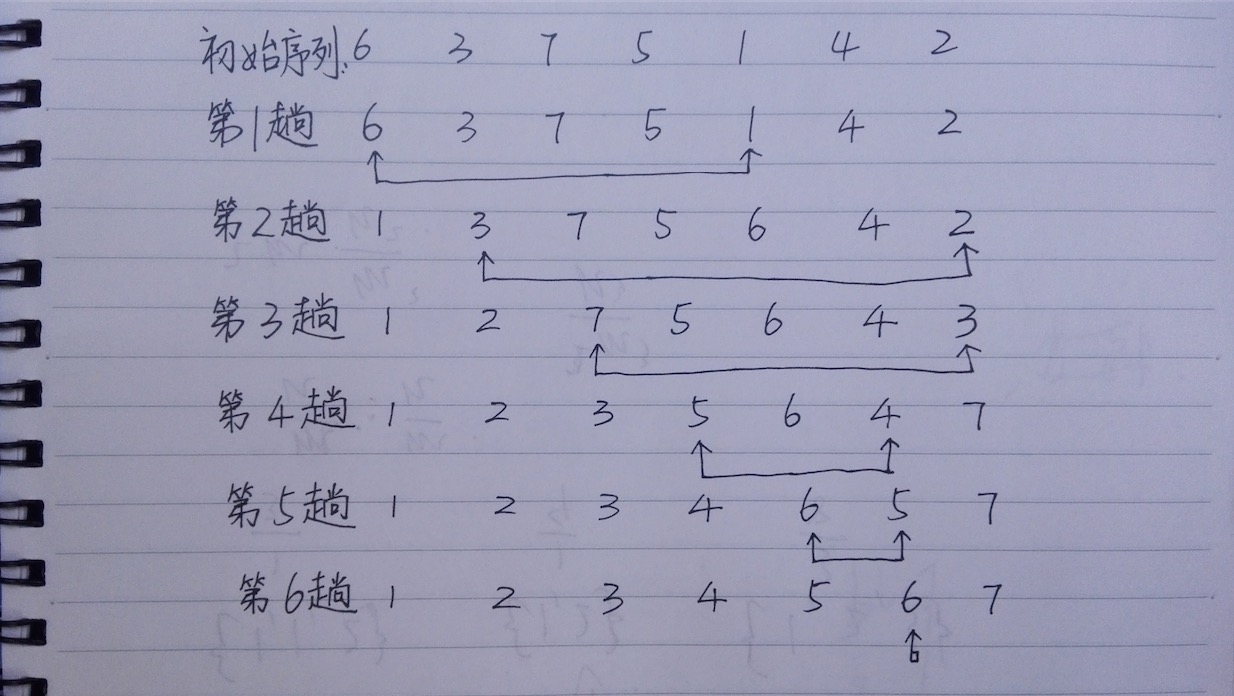 初始序列: 6 3 7 5 1 4 2
第1趟 6 3 7 5 1 4 2
第2趟 1 3 7 5 6 4 2
第3趟 1 2 7 5 6 4 3
第4趟 1 2 3 5 6 4 7
第5趟 1 2 3 4 6 5 7
第6趟 1 2 3 4 5 6 7